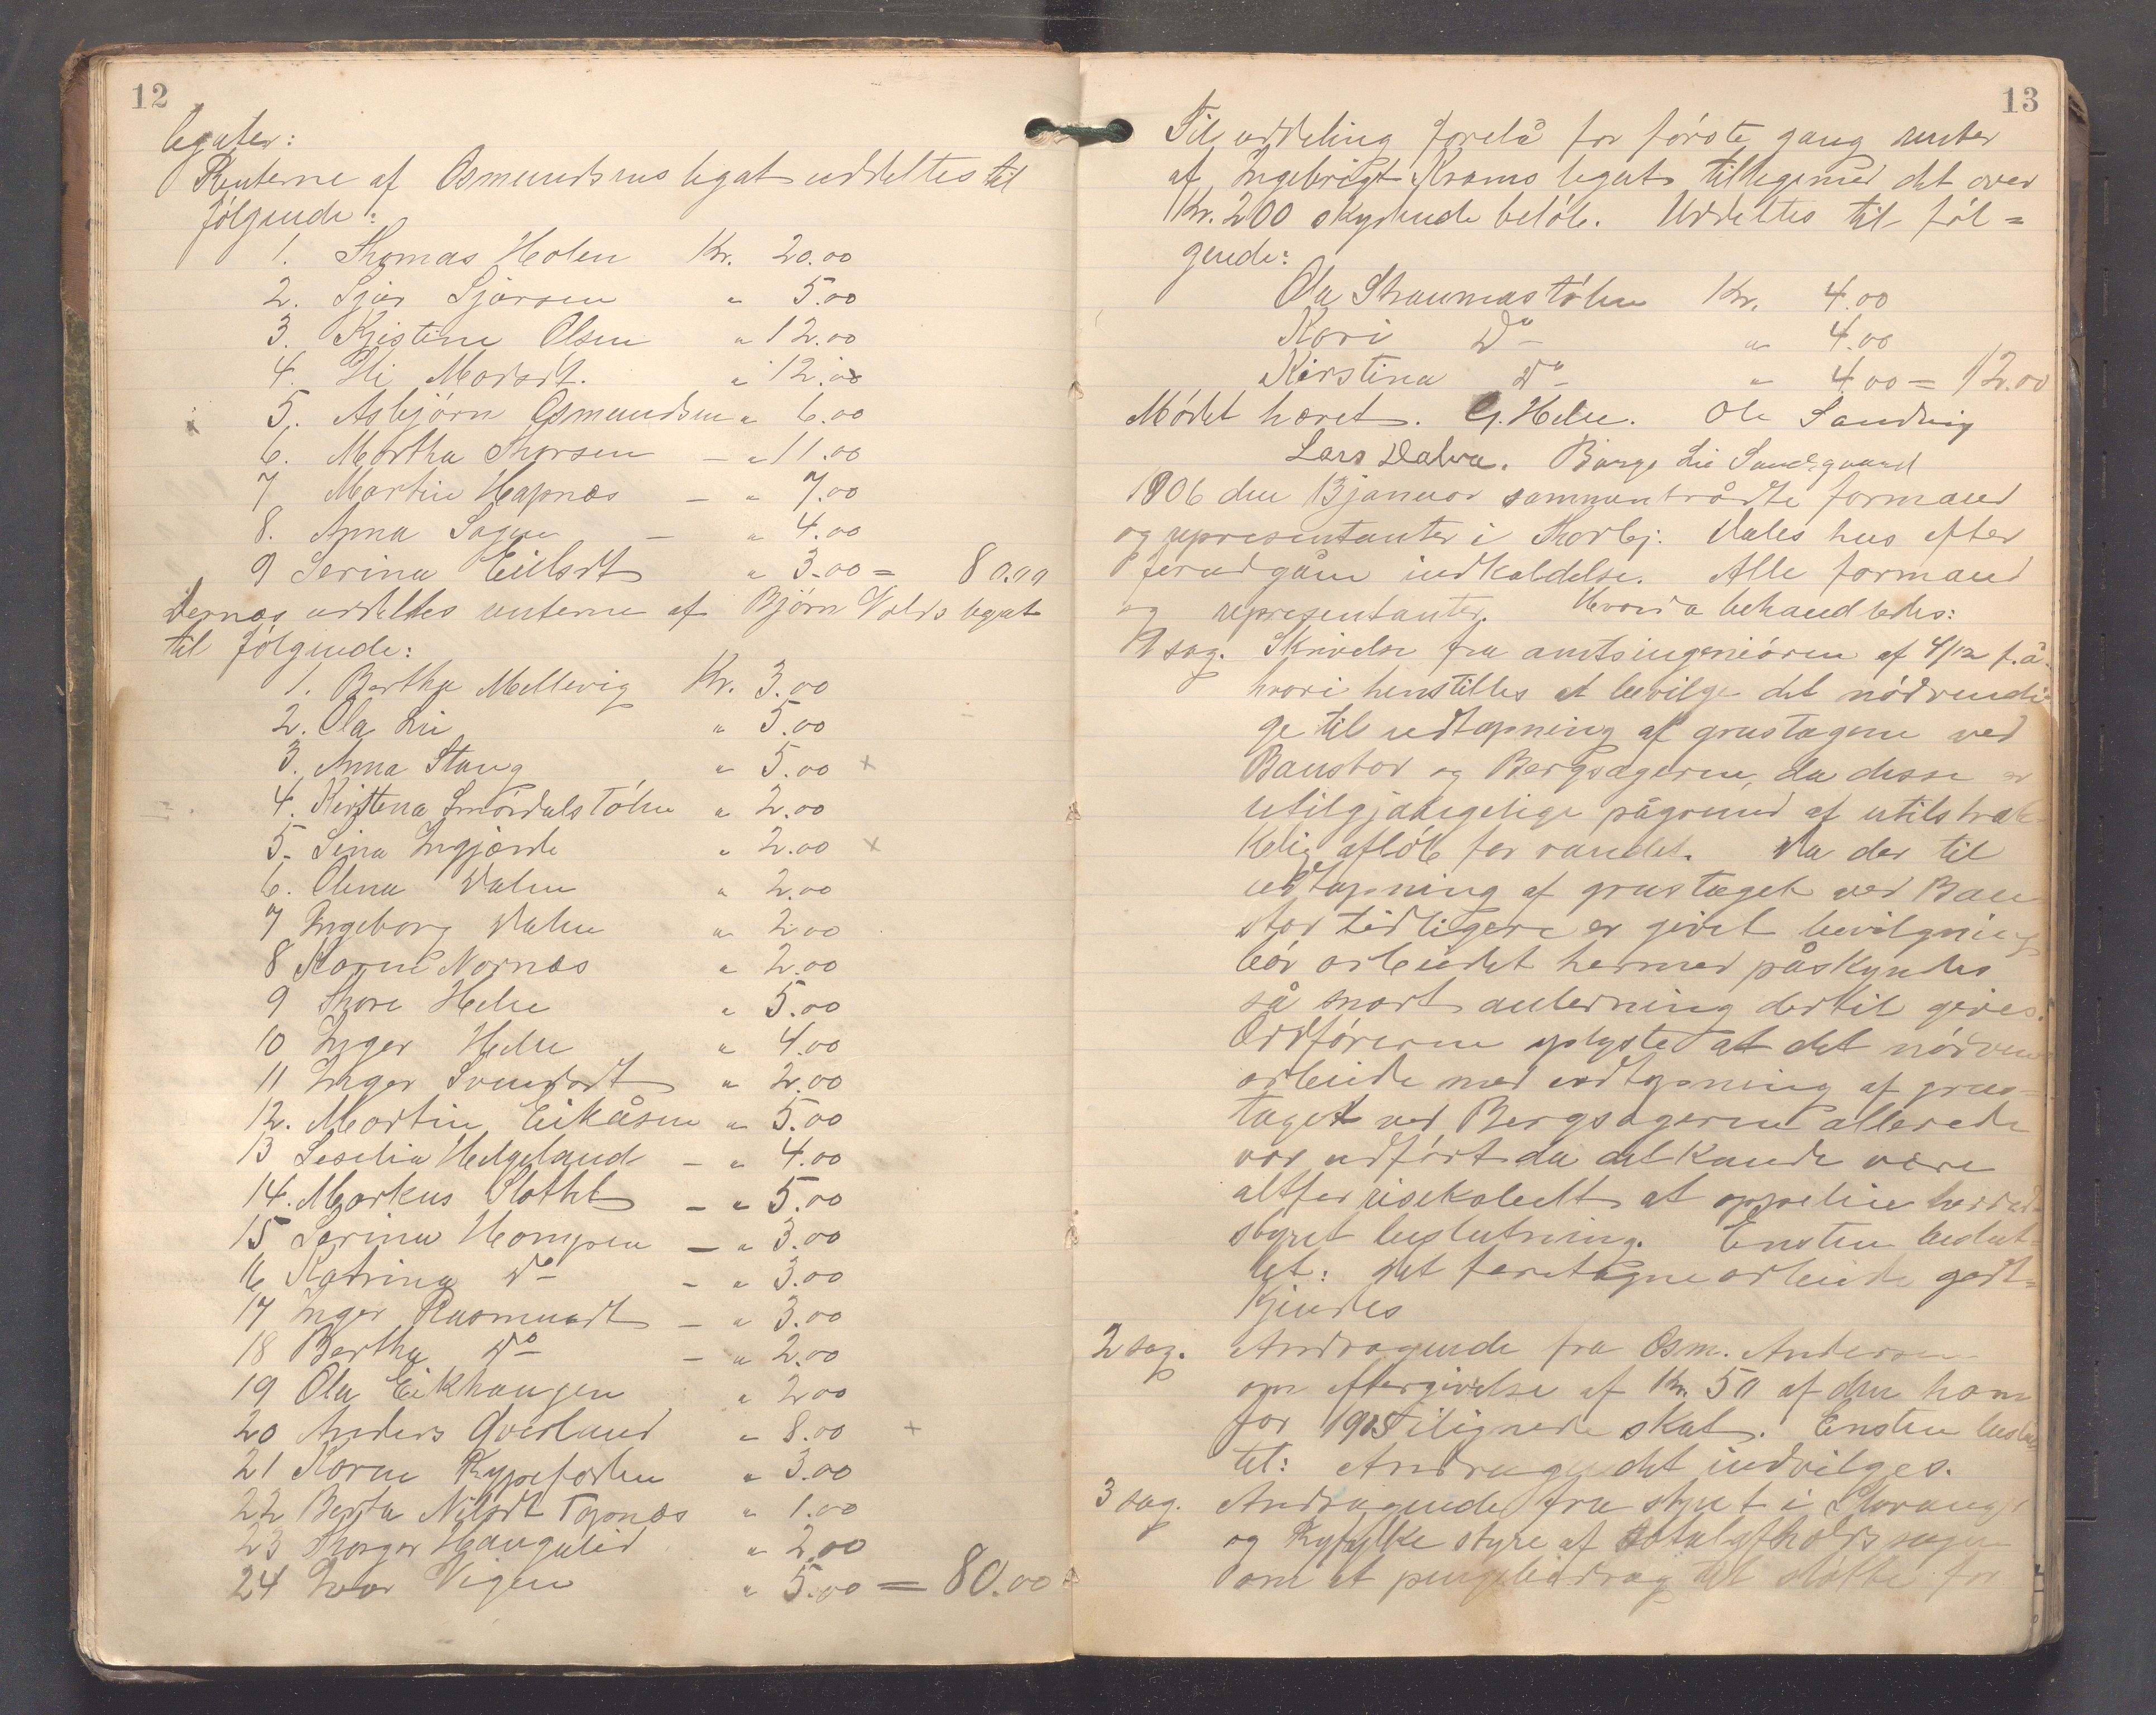 12
legater:
Renterne af Osmundsens legat uddeltes til
følgende:
1. Thomas Holen Kr. 20.00
2. Sjur Sjursen " 5.00
3. Kristine Olsen " 12.00
4. Eli Morsdt. " 12.00
5. Asbjørn Osmundsen " 6.00
6. Martha Thorsen — " 11.00
7 Martin Hapnes — " 7.00
8. Anna Sagen — " 4.00
9 Serina Eielsdt " 3.00 = 80.00
Dernæs uddeltes renterne af Bjørn Volds legat
til følgende:
1. Bertha Mellevig Kr. 3.00
2. Ola Lie " 5.00
3. Anna Stang " 5.00 x
4. Kirstena Smørdalstølen " 2.00
5. Sina Ingjerde " 2.00 x
6. Olena Dalen " 2.00
7 Ingeborg Dalen " 2.00
8 Karen Nornes " 2.00
9 Thore Helle " 5.00
10 Inger Helle " 4.00
11 Inger Svendsdt " 2.00
12. Martin Eikåsen " 5.00
13 Seselia Helgeland — " 4.00
14. Markus Slothl — " 5.00
15 Serina Hompen — " 3.00
16 Katrina Do — — " 3.00
17 Inger Rasmusdt — " 3.00
18 Bertha Do — — " 2.00
19 Ola Eikhaugen " 2.00
20 Anders Qverland " 8.00 x
21 Karen Rypefoden " 3.00
22 Berta Nilsdt Tysnes " 1.00
23 Thorger Haugalid " 2.00
24 Ivar Vigen " 5.00 = 80.00
13
Til uddeling forelå for første gang renter
af Ingebrigt Krams legat tilligemed det over
Kr. 200 skydende beløb. Uddeltes til føl=
gende:
Ola Straumastølen Kr. 4.00
Kari Do — " 4.00
Kirstina Do — " 4.00 = 12.00
Mødet hævet. G. Helle. Ole Sandvig
Lars Dalva. Børge Lie Sandsgaard
1906 den 13 januar sammentrådte formænd
og representanter i Thorbj. Dales hus efter
forudgåen indkaldelse. Alle formænd
og representanter. Hvorda behandledes:
1 sag. Skrivelse fra amtsingeniøren af 4/12 f.å.
hvori henstilles at bevilge det nødvendi
ge til udtapning af grustagene ved
Baustar og Bergsagerne, da disse er
utilgjængelige pågrund af utilstræk
kelig afløb for vandet. Da der til
udtapning af grustaget ved Bau
star tidligere er givet bevilgning
bør arbeidet hermed påskyndes
så snart anledning dertil gives.
Ordføreren oplyste at det nødven
arbeide med udtapning af grus-
taget ved Bergsagerne allerede
var udført da det kunde være
altfor risekabelt at oppebie herreds
styret beslutning. Enstem beslut
tet: Det foretagne arbeide godt=
kjendes
2 sag. Andragende fra Osm. Andersen
om eftergivelse af Kr. 50 af den ham
for 1905 ilignede skat. Enstem beslut
tet: Andragendet indvilges.
3 sag. Andragende fra styret i Stavanger
og Ryfylke styre af totalafholdssagen
om et pengebidrag til støtte for